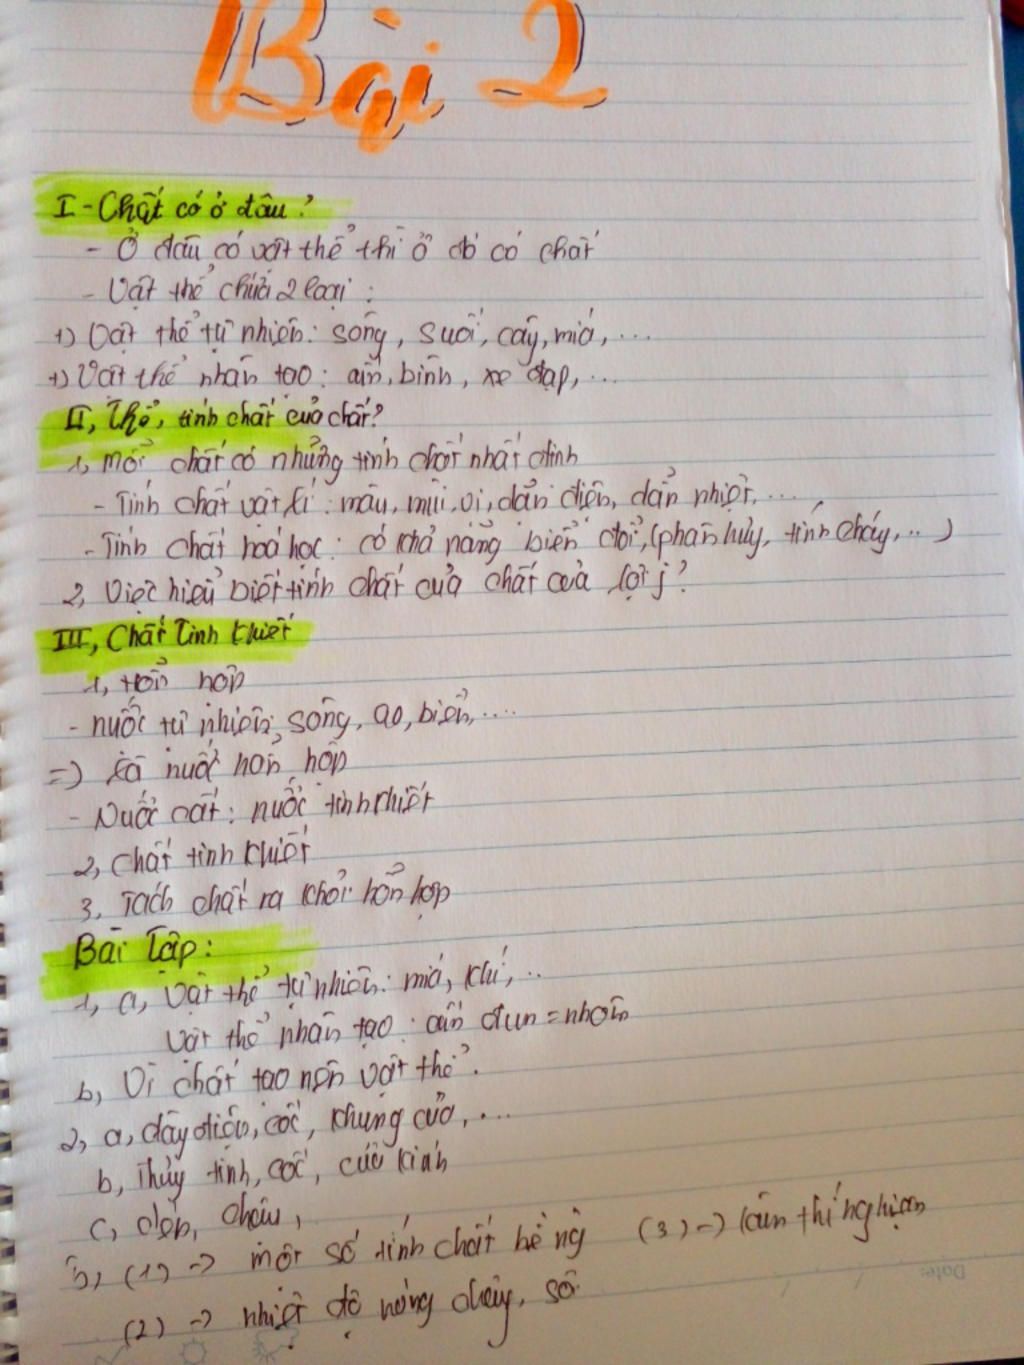 Bài 2
I - Chất có ở đâu?
- Ở đâu có vật thể thì ở đó có chất
- Vật thể chứa 2 loại:
+) Vật thể tự nhiên: sông, suối, cây, mía, ...
+) Vật thể nhân tạo: ấm, bình, xe đạp, ...
II, Thể, tính chất của chất?
1, Mỗi chất có những tính chất nhất định
- Tính chất vật lí: màu, mùi, vị, dẫn điện, dẫn nhiệt, ...
- Tính chất hoá học: có khả năng biến đổi, (phân hủy, tính cháy, ...)
2, Việc hiểu biết tính chất của chất có lợi j?
III, Chất Tinh khiết
1, Hỗn hợp
- nước tự nhiên: sông, ao, biển, ....
=> Là nước hỗn hợp
- Nước cất: nước tinh khiết
2, chất tinh khiết
3, Tách chất ra khỏi hỗn hợp
Bài Tập:
1, a, Vật thể tự nhiên: mía, khí, ..
Vật thể nhân tạo: ấm đun = nhôm
b, Vì chất tạo nên vật thể.
2, a, dây điện, cốc, khung cửa, ...
b, Thủy tinh, cốc, cửa kính
c, chậu,
3, (1) -> một số tính chất bề ng (3) -> làm thí nghiệm
(2) -> nhiệt độ nóng chảy, sô
Date: